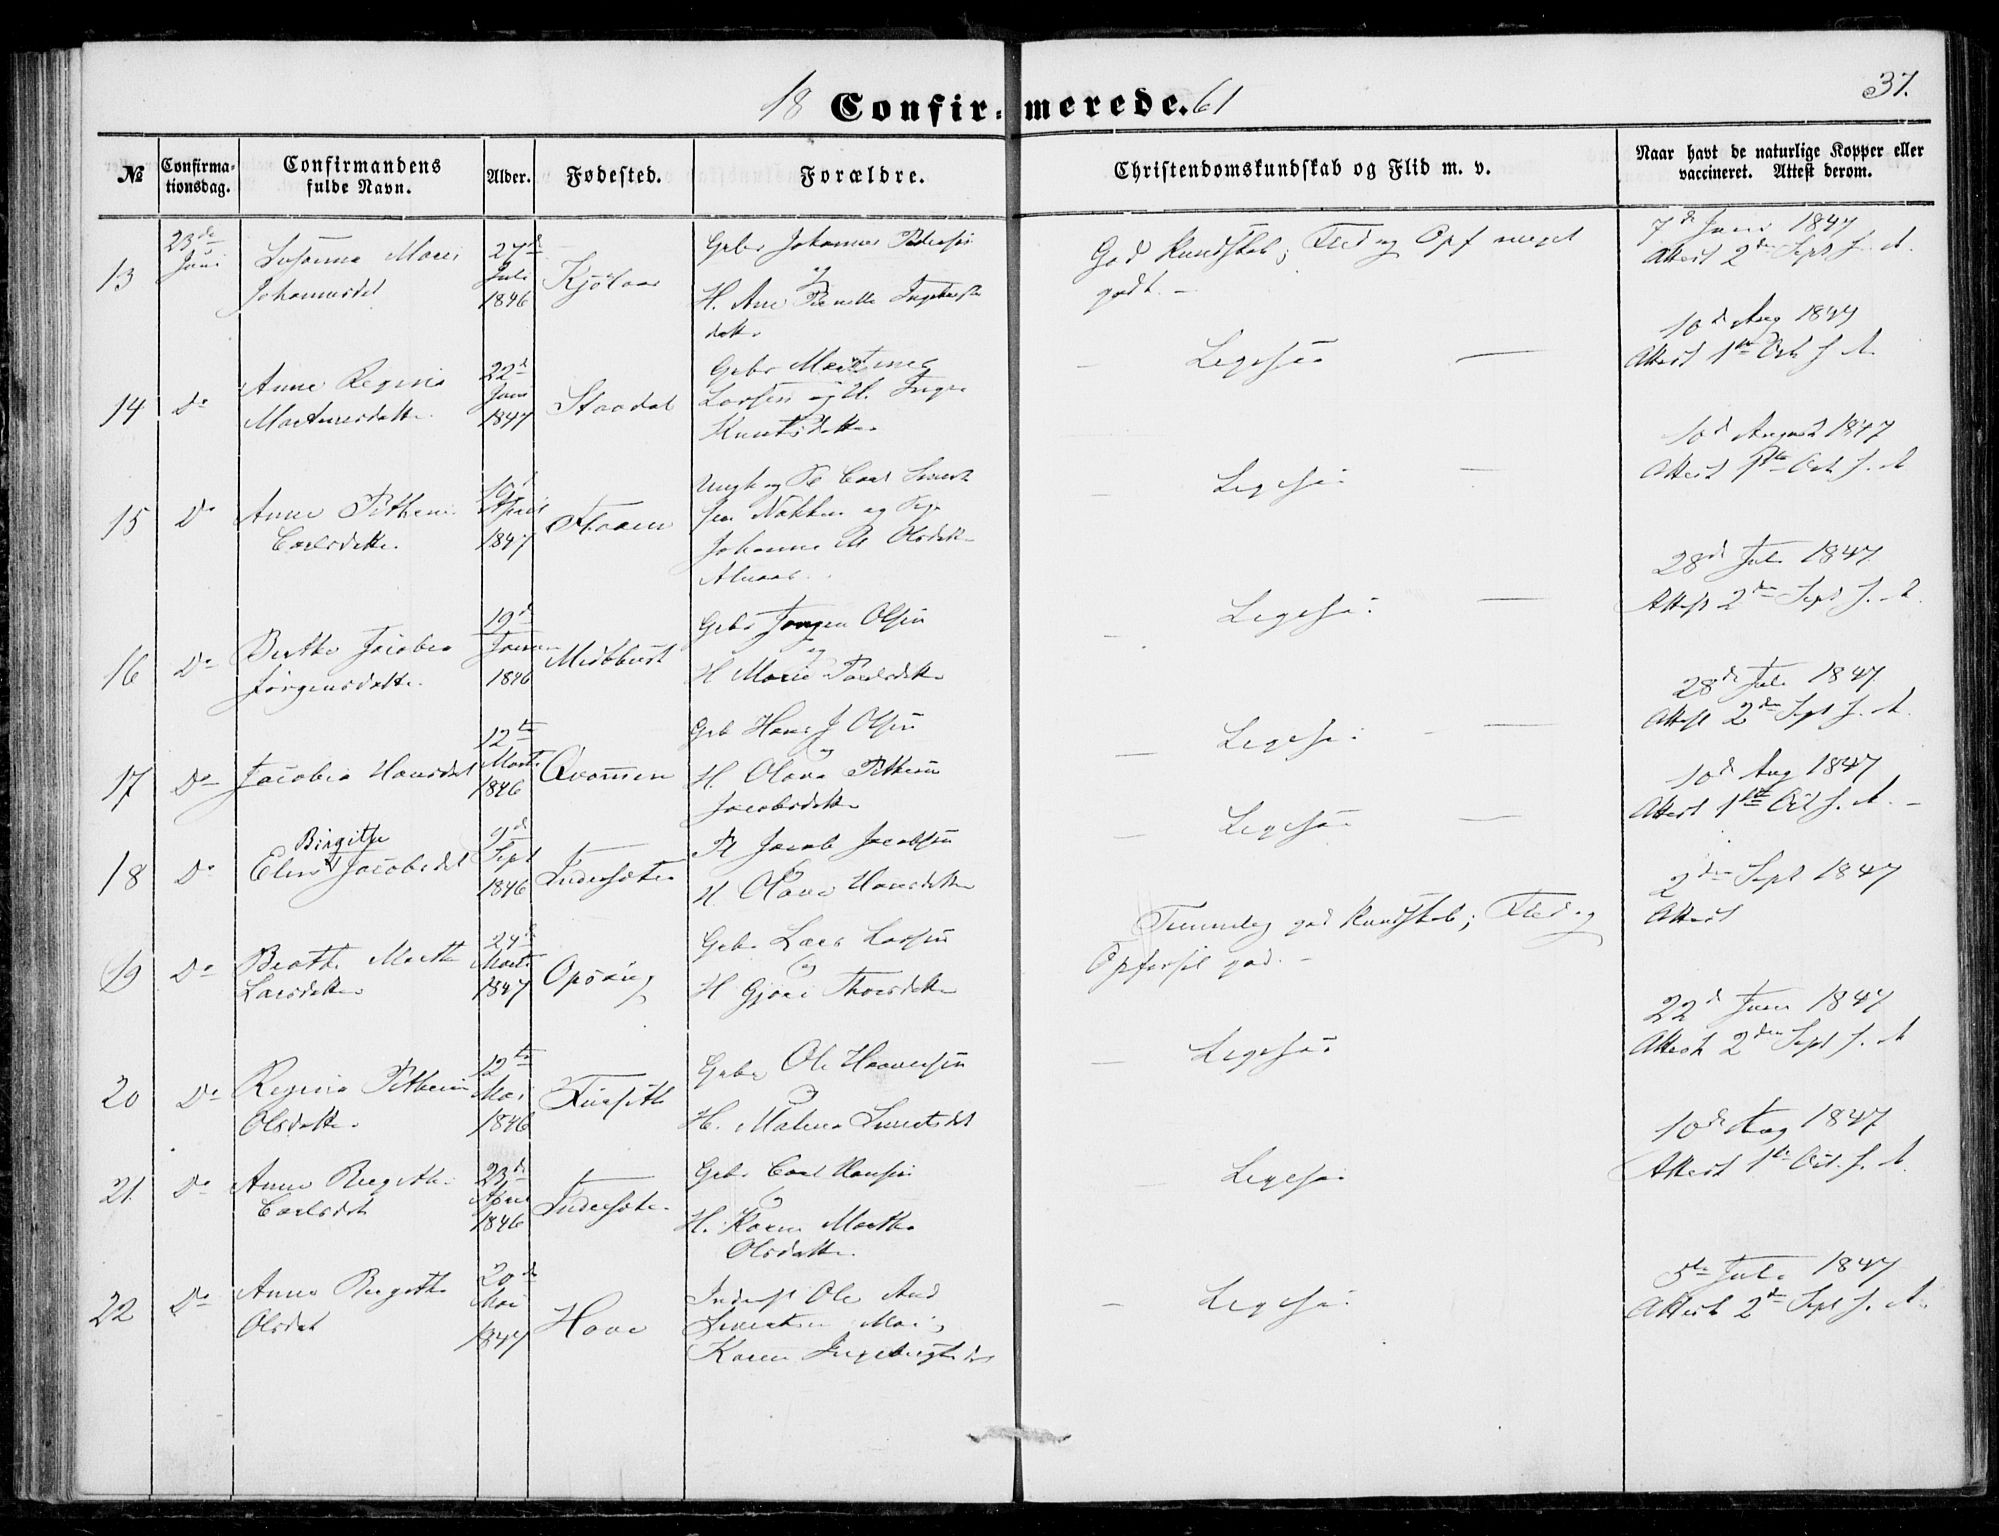 18 Confirmerede. 61
37.
№ Confirmationsdag. Confirmandens fulde Navn. Alder. Fødested. Forældre. Christendomskundskab og Flid m. v. Naar havt de naturlige Kopper eller vaccineret. Attest derom.
13 23de Juni Susanna Marie Johannesdat 27d Juli 1846 Gbr Johannes Pedersen og H. Ane Pernille datt. God Kundskab; Flid og Opf meget godt. — 7d Juni 1847 Attest 2den Sept s. A.
14 Do Anne Regine Martinusdatte. 22d Juni 1847 Staadal Gbr Martinus Larsen og H. Inger Knutsdatte. Ligesaa — 10d Aug 1847 Attest 1te Oct s. A.
15 Do Anne Pethrine Carlsdatte. April 1847 Floaen Ungk og Carl Nakken og Pige Johanne M Olsdatte Ligesaa — 10d August 1847 Attest 1te Oct s. A
16 Do Berthe Jacobea Jørgensdatte. 19d 1846 Midtbust Gbr Jørgen Olsen og H Marie datte — Ligesaa — 28d Juli 1847 Attest 2den Sept s. A.
17 Do Jacobea Hansdat 12te Marts 1846 Qvammen Gbr Hans J Olsen og H. Olava Pethrine Jacobsdatte — Ligesaa — 28d Juli 1847 Attest 2den Sept s. A.
18 Do Elen Birgithe Jacobsdat 9d Sept 1846 Indresæter Jacob Jacobsen og H. Olava Hansdatte — Ligesaa — 10d Aug 1847 Attest 1te Oct s. A. —
19 Do Berthe Marthe Larsdatte 24d Marts 1847 Opsang Gbr Lars Larsen og H Gjøri Thorsdatte Temmelig god Kundskab; Flid og Opførsel god. — 2den Sept 1847 Attest
20 Do Regine Pethrine Olsdatte. 12te Mai 1846 Gbr Ole og H. Malene — Ligesaa 22d Juni 1847 Attest 2den Sept s. A
21 Do Anne Birgithe Carlsdat 23d April 1846 Indresæter Gbr Carl Hansen og H. Karen Marthe Olsdatte. Ligesaa 10d Aug 1847 Attest 1te Oct. s. A.
22 Do Anne Birgithe Olsdat 20d Mai 1847 Hove Inderst Ole And Sivertsen Karen Ingebrigtsdat — Ligesaa 5te Juli 1847 Attest 2den Sept s. A.